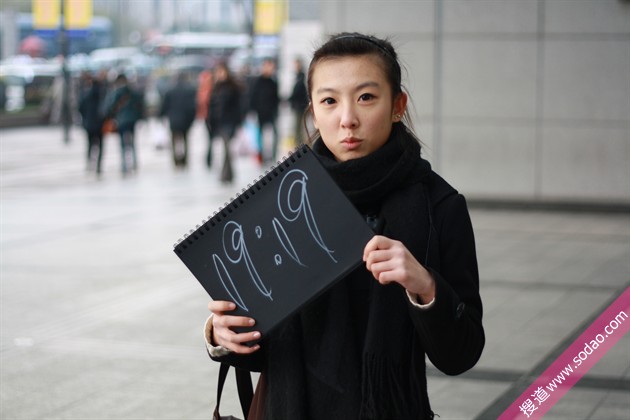 19:19
搜道www.sodao.com